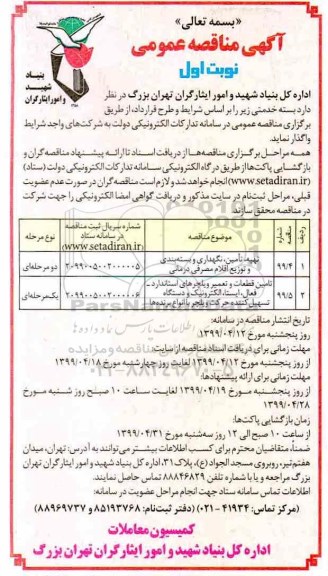 «بسمه تعالی»
آگهی مناقصه عمومی
نوبت اول
بنیاد
شهید
و امور ایثارگران
اداره کل بنیاد شهید و امور ایثارگران تهران بزرگ در نظر
دارد بسته خدمتی زیر را بر اساس شرایط و طرح قرارداد، از طریق
برگزاری مناقصه عمومی در سامانه تدارکات الکترونیکی دولت به شرکت‌های واجد شرایط
واگذار نماید.
همه مراحل برگزاری مناقصه‌ها از دریافت اسناد تا ارائه پیشنهاد مناقصه‌گران و
بازگشایی پاکت‌ها از طریق درگاه الکترونیکی سامانه تدارکات الکترونیکی دولت (ستاد)
(www.setadiran.ir) انجام خواهد شد و لازم است مناقصه‌گران در صورت عدم عضویت
قبلی، مراحل ثبت‌نام در سایت مذکور و دریافت گواهی امضا الکترونیکی را جهت شرکت
در مناقصه محقق سازند.
ردیف
شماره مناقصه
موضوع مناقصه
شماره سریال ثبت مناقصه در سامانه ستاد (www.setadiran.ir)
نوع مرحله
۱
۹۹/۴
تهیه، تأمین، نگهداری و بسته‌بندی و توزیع اقلام مصرفی درمانی
۲۰۹۹۰۰۵۰۰۲۰۰۰۰۰۵
دو مرحله‌ای
۲
۹۹/۵
تامین قطعات و تعمیر ویلچرهای استاندارد ـ فعال، ایستا، الکترونیک و دستگاه تسهیل‌کننده حرکت ویلچر با انواع برندها
۲۰۹۹۰۰۵۰۰۲۰۰۰۰۰۶
یک‌مرحله‌ای
تاریخ انتشار مناقصه در سامانه:
روز پنجشنبه مورخ ۱۳۹۹/۰۴/۱۲
مهلت زمانی برای دریافت اسناد مناقصه از سایت:
از روز پنجشنبه مورخ ۱۳۹۹/۰۴/۱۲ لغایت روز چهارشنبه مورخ ۱۳۹۹/۰۴/۱۸
مهلت زمانی برای ارائه پیشنهادها:
از روز پنجشنبه مورخ ۱۳۹۹/۰۴/۱۹ لغایت ساعت ۱۰ صبح روز شنبه مورخ
۱۳۹۹/۰۴/۲۸
زمان بازگشایی پاکت‌ها:
از ساعت ۱۰ صبح الی ۱۲ روز سه‌شنبه مورخ ۱۳۹۹/۰۴/۳۱
ضمناً، متقاضیان محترم برای کسب اطلاعات بیشتر می‌توانند به آدرس: تهران، میدان
هفتم‌تیر، روبروی مسجد الجواد (ع)، پلاک ۳۱، اداره کل بنیاد شهید و امور ایثارگران تهران
بزرگ مراجعه و یا با شماره تلفن ۸۸۸۴۶۸۲۹ تماس حاصل نمایند.
اطلاعات تماس سامانه ستاد جهت انجام مراحل عضویت در سامانه:
(مرکز تماس: ۴۱۹۳۴-۰۲۱) (دفتر ثبت‌نام: ۸۵۱۹۳۷۶۸ و ۸۸۹۶۹۷۳۷)
کمیسیون معاملات
اداره کل بنیاد شهید و امور ایثارگران تهران بزرگ